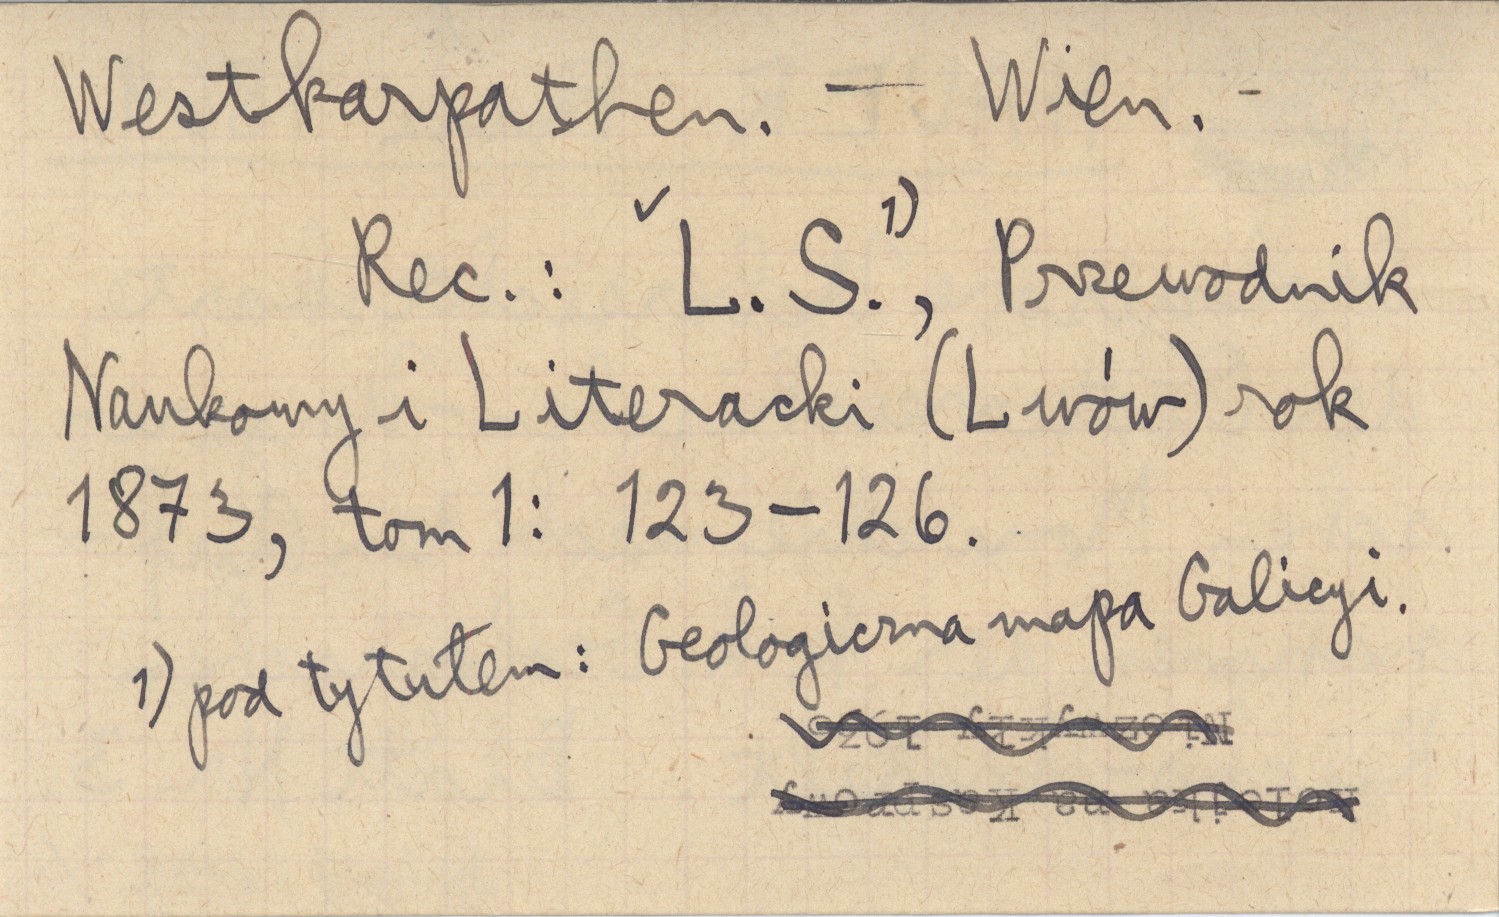 Westkarpathen. — Wien. -
Rec.: ✓L. S.¹⁾, Przewodnik
Naukowy i Literacki (Lwów) rok
1873, tom 1: 123–126.
1) pod tytułem: Geologiczna mapa Galicyi.
Kolejka na Kasprowy